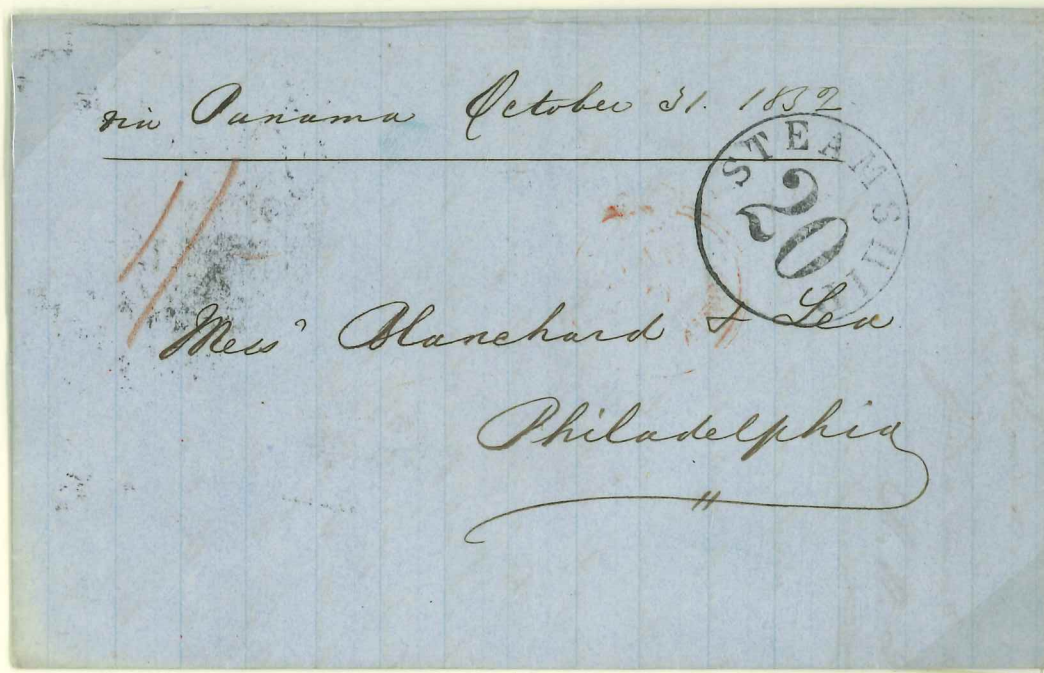 via Panama October 31. 1852
STEAMSHIP
20
Mess Blanchard & Lea
Philadelphia